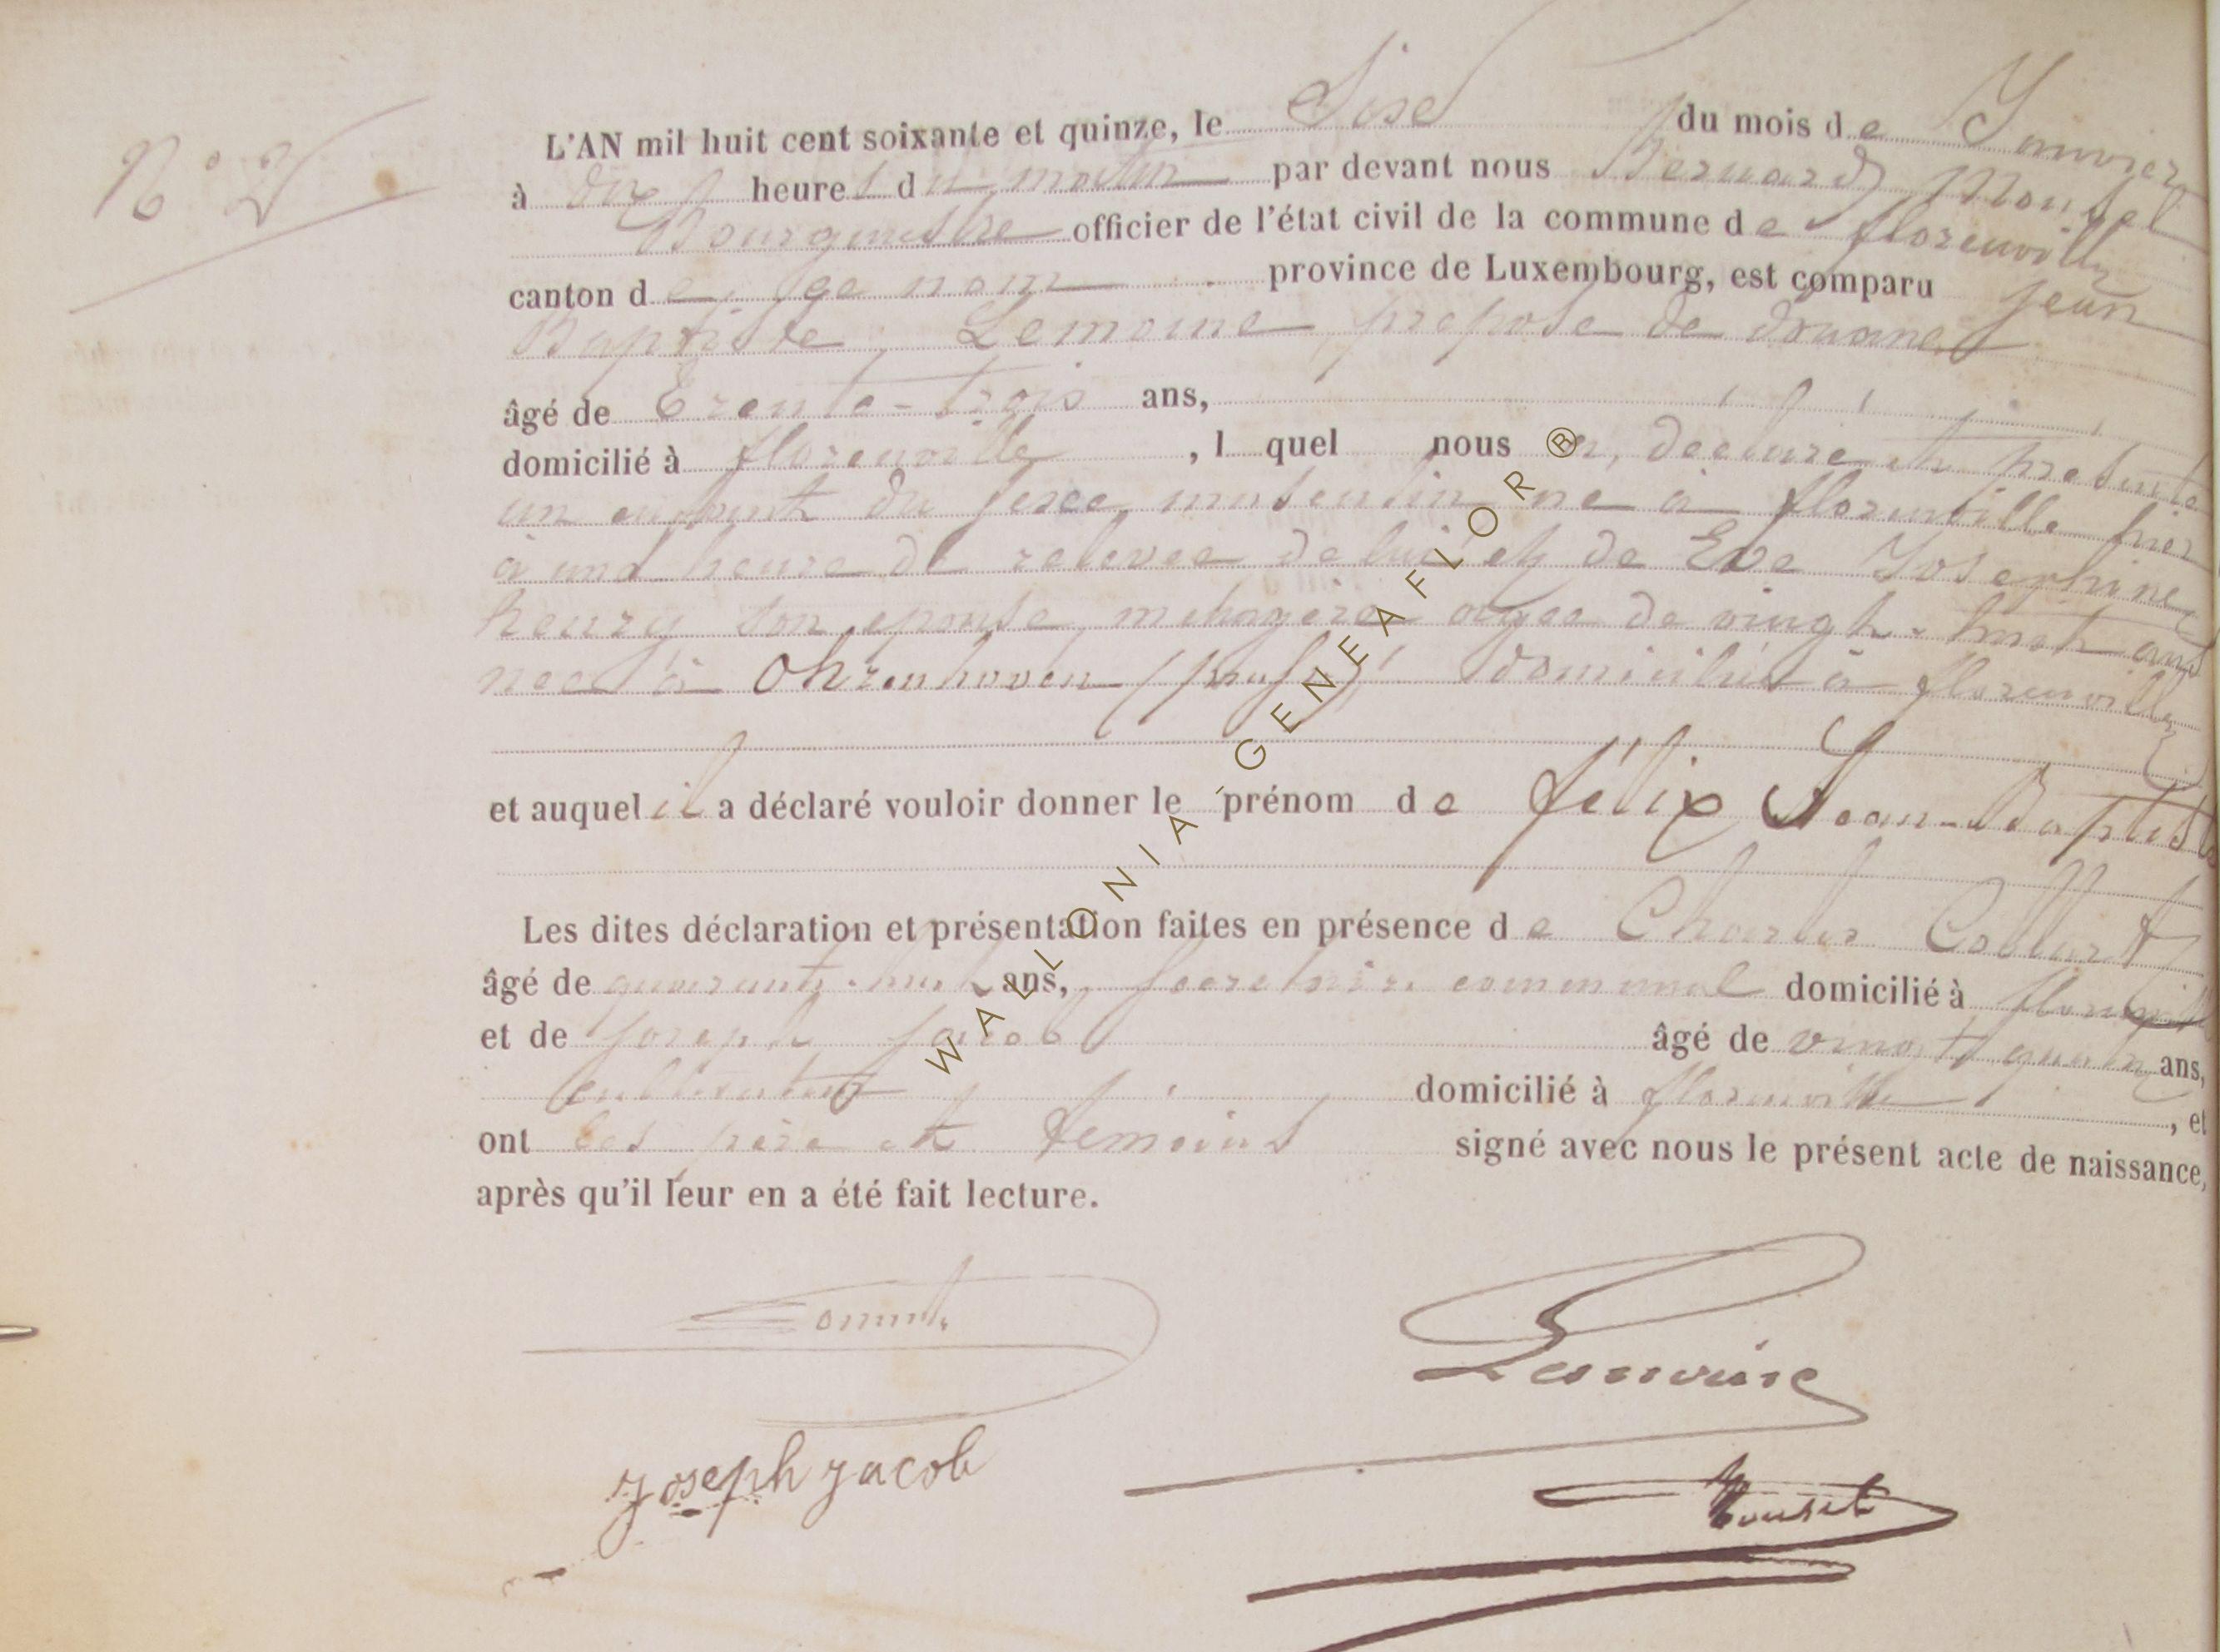 N° 2
L'AN mil huit cent soixante et quinze, le Sise du mois de Janvier
à dix heures du matin par devant nous Bernard Mousel
Bourgmestre officier de l'état civil de la commune de florenville
canton de ge nom province de Luxembourg, est comparu Jean
Baptiste Lemoine préposé de douane
âgé de Trente-trois ans,
domicilié à florenville, l quel nous a, déclaré et présenté
un enfant du sexe masculin né à florenville hier
à une heure de relevée de lui et de Eve Josephine
henry son épouse, ménagère agée de vingt-huit ans
née à Ohrenhoven domiciliés à florenville
et auquel il a déclaré vouloir donner le prénom de félix Jean-Baptiste
Les dites déclaration et présentation faites en présence de Charles
âgé de quarante-huit ans, secretaire communal domicilié à florenville
et de joseph jacob âgé de vingt quatre ans,
cultivateur domicilié à florenville, et
ont les père et témoins signé avec nous le présent acte de naissance,
après qu'il leur en a été fait lecture.
Lemoine
Joseph Jacob
WALLONIA-GENEAFLOR®